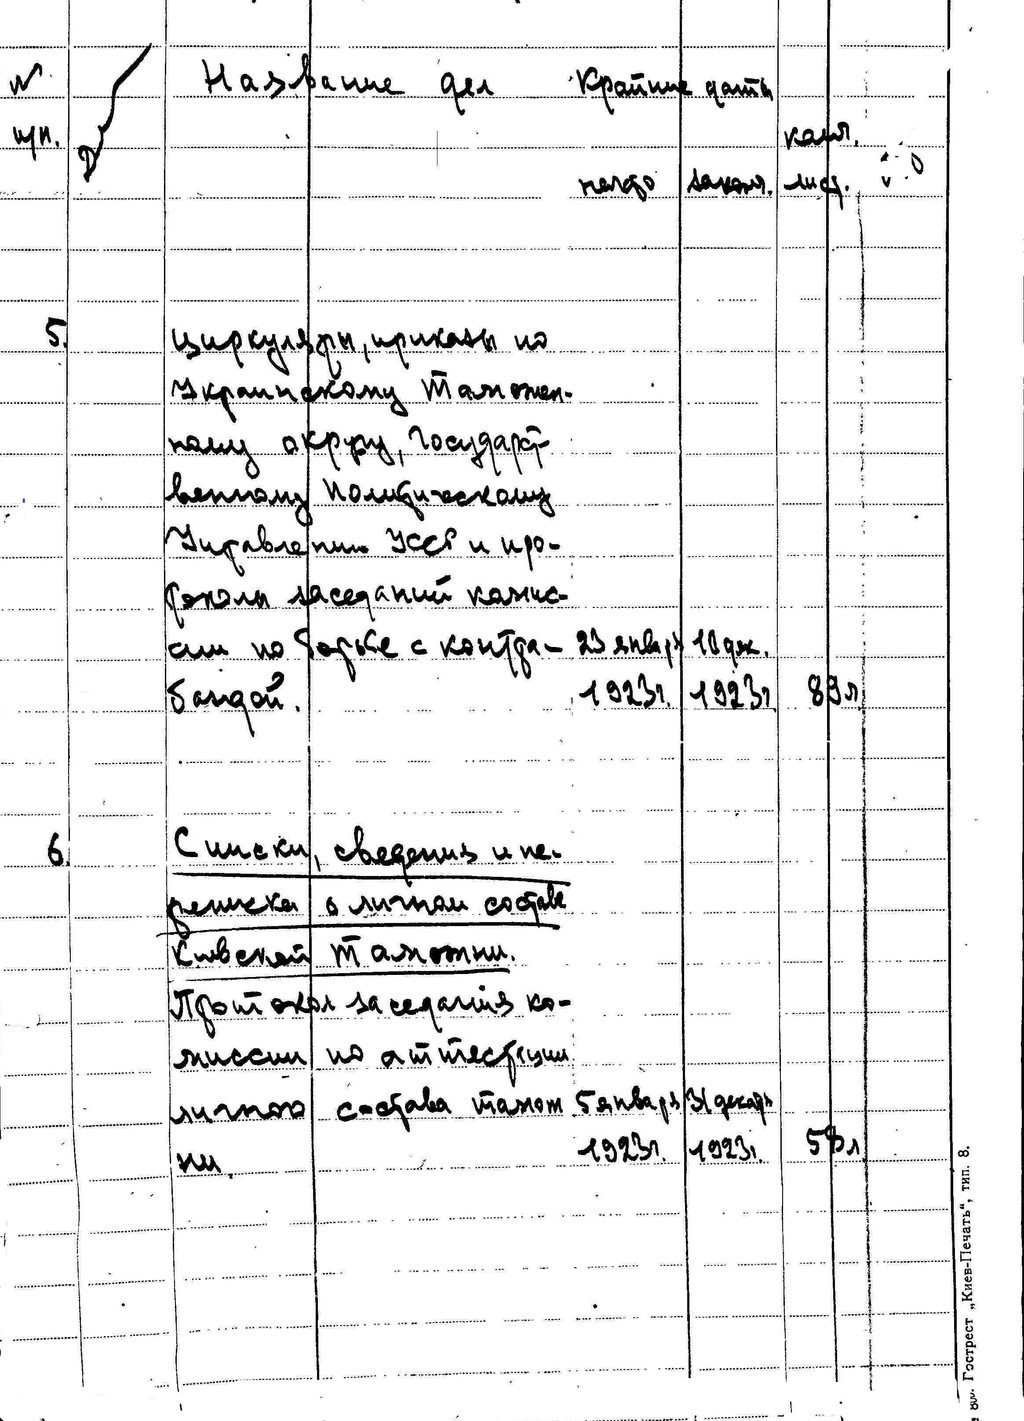 N Название дел Крайние даты
п/п. колл.
начало законч. лист.
5. Циркуляры, приказы по
Украинскому Таможен-
ному округу, Государст-
венному Политическому
Управлению УССР и про-
токолы заседаний комис-
сии по борьбе с контра- 23 январ 10 дек.
бандой. 1923г. 1923г. 89 л
6. Списки, сведения и пе-
реписка о личном составе
Киевской таможни.
Протокол заседания ко-
миссии по аттестации
личного состава тамож 5 январ 31 декабр
ни. 1923г. 1923г. 58 л
Гострест „Киев-Печать“, тип. 8.